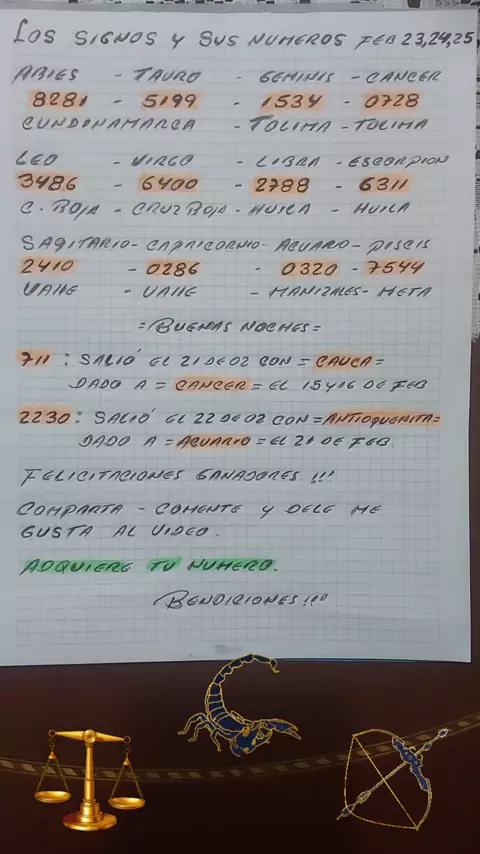 LOS SIGNOS Y SUS NUMEROS FEB 23,24,25
ARIES - TAURO - GEMINIS - CANCER
8281 - 5199 - 1534 - 0728
CUNDINAMARCA - TOLIMA - TOLIMA
LEO - VIRGO - LIBRA - ESCORPION
3486 - 6400 - 2788 - 6311
C. ROJA - CRUZ ROJA - HUILA - HUILA
SAGITARIO - CAPRICORNIO - ACUARIO - PISCIS
2410 - 0286 - 0320 - 7544
VALLE - VALLE - MANIZALES - META
=BUENAS NOCHES=
711 : SALIÓ EL 21 DE 02 CON = CAUCA =
DADO A = CANCER = EL 15 Y 16 DE FEB
2230 : SALIÓ EL 22 DE 02 CON = ANTIOQUEÑITA =
DADO A = ACUARIO = EL 21 DE FEB.
FELICITACIONES GANADORES !!!
COMPARTA - COMENTE Y DELE ME
GUSTA AL VIDEO.
ADQUIERE TU NUMERO.
BENDICIONES !!!